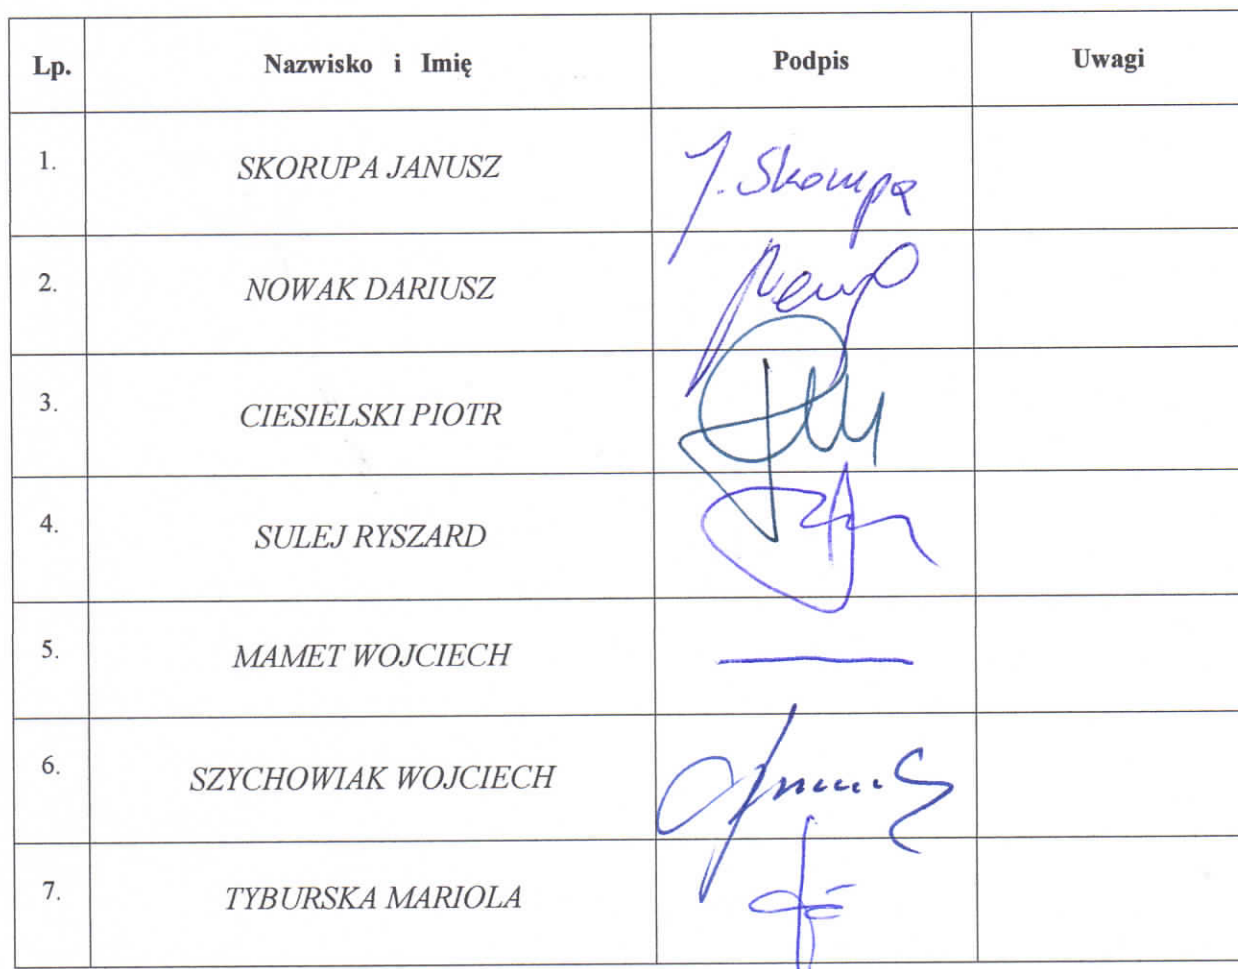 Lp. Nazwisko i Imię Podpis Uwagi
1. SKORUPA JANUSZ J. Skorupa
2. NOWAK DARIUSZ
3. CIESIELSKI PIOTR
4. SULEJ RYSZARD
5. MAMET WOJCIECH
6. SZYCHOWIAK WOJCIECH
7. TYBURSKA MARIOLA